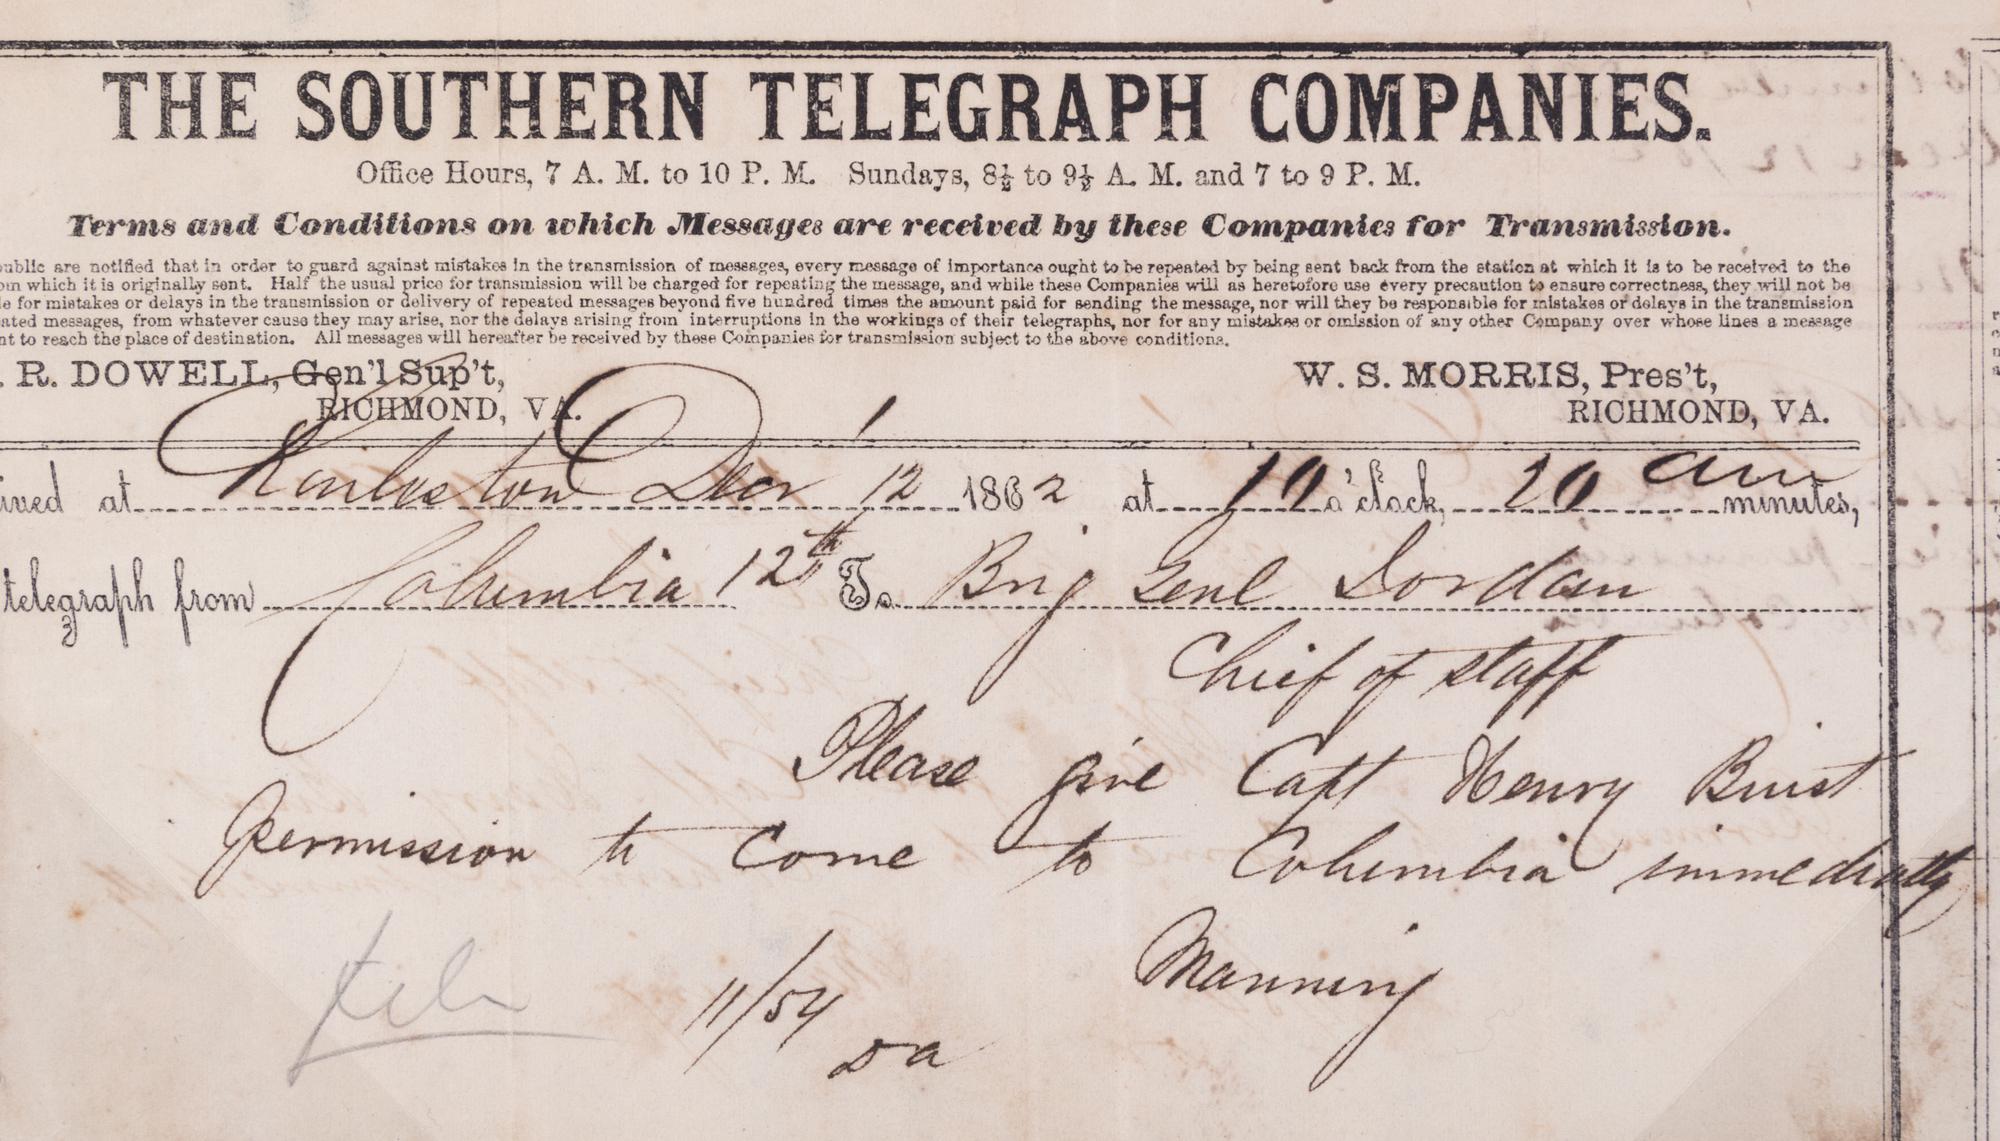 THE SOUTHERN TELEGRAPH COMPANIES.
Office Hours, 7 A. M. to 10 P. M. Sundays, 8½ to 9½ A. M. and 7 to 9 P. M.
Terms and Conditions on which Messages are received by these Companies for Transmission.
public are notified that in order to guard against mistakes in the transmission of messages, every message of importance ought to be repeated by being sent back from the station at which it is to be received to the
om which it is originally sent. Half the usual price for transmission will be charged for repeating the message, and while these Companies will as heretofore use every precaution to ensure correctness, they will not be
le for mistakes or delays in the transmission or delivery of repeated messages beyond five hundred times the amount paid for sending the message, nor will they be responsible for mistakes or delays in the transmission
ated messages, from whatever cause they may arise, nor the delays arising from interruptions in the workings of their telegraphs, nor for any mistakes or omission of any other Company over whose lines a message
nt to reach the place of destination. All messages will hereafter be received by these Companies for transmission subject to the above conditions.
. R. DOWELL, Gen'l Sup't, W. S. MORRIS, Pres't,
RICHMOND, VA. RICHMOND, VA.
ived at Charleston Decr 12 1862 at 10 o'clock, 20 am minutes,
telegraph from Columbia 12th To Brig Genl Jordan
Chief of staff
Please give Capt Henry Buist
permission to come to Columbia immediately
Manning
11/54